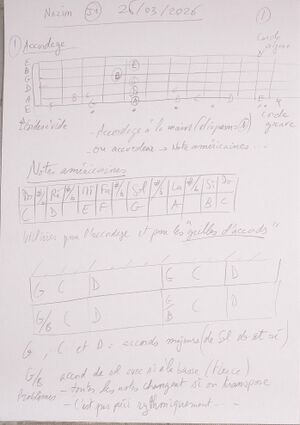 Nazim S1 26/03/2026 ①
① Accordage
Corde aigue
E
B
G
D
A
E
F G A B C D E
corde grave
- Accordage à la main (diagramme A)
- ou accordeur → Notes américaines...
Notes américaines
Do #/b Ré #/b Mi Fa #/b Sol #/b La #/b Si Do
C D E F G A B C
Utilisées pour l'accordage et pour les "grilles d'accords"
G C D G C D
G/B C D G/B C D
G, C et D = accords majeurs (de Sol do et ré)
G/B accord de sol avec si à la basse (tierce)
Problèmes - toutes les notes changent si on transpose
- C'est pas précis rythmiquement...